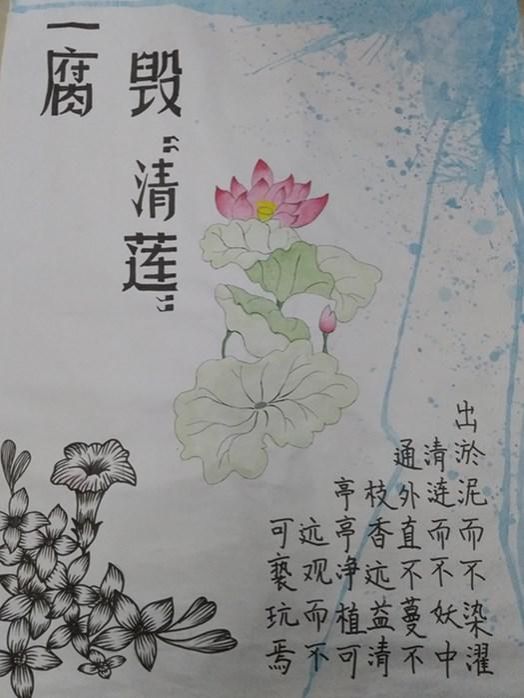 一腐
毁“清莲”
出淤泥而不染濯
清涟而不妖中
通外直不蔓不
枝香远益清
亭亭净植可
远观而不
可亵玩焉